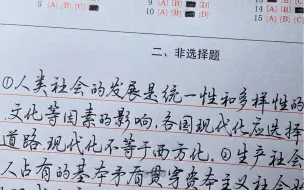 5 [A] [B] [C]
9 [A] [B] [C]
10 [A] [B] [D]
15 [A] [B] [C]
二、非选择题
①人类社会的发展是统一性和多样性的
文化等因素的影响,各国现代化应选择
道路,现代化不等于西方化.②生产社会
人占有的基本矛盾贯穿资本主义社会